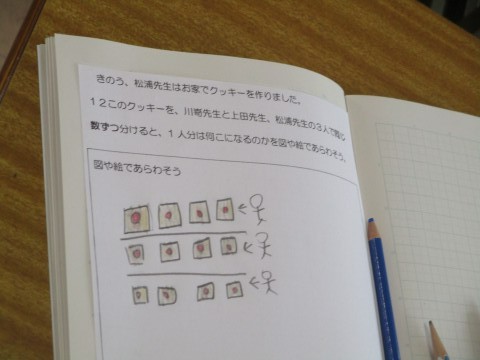 きのう、松浦先生はお家でクッキーを作りました。
12このクッキーを、川嵜先生と上田先生、松浦先生の3人で同じ
数ずつ分けると、1人分は何こになるのかを図や絵であらわそう。
図や絵であらわそう